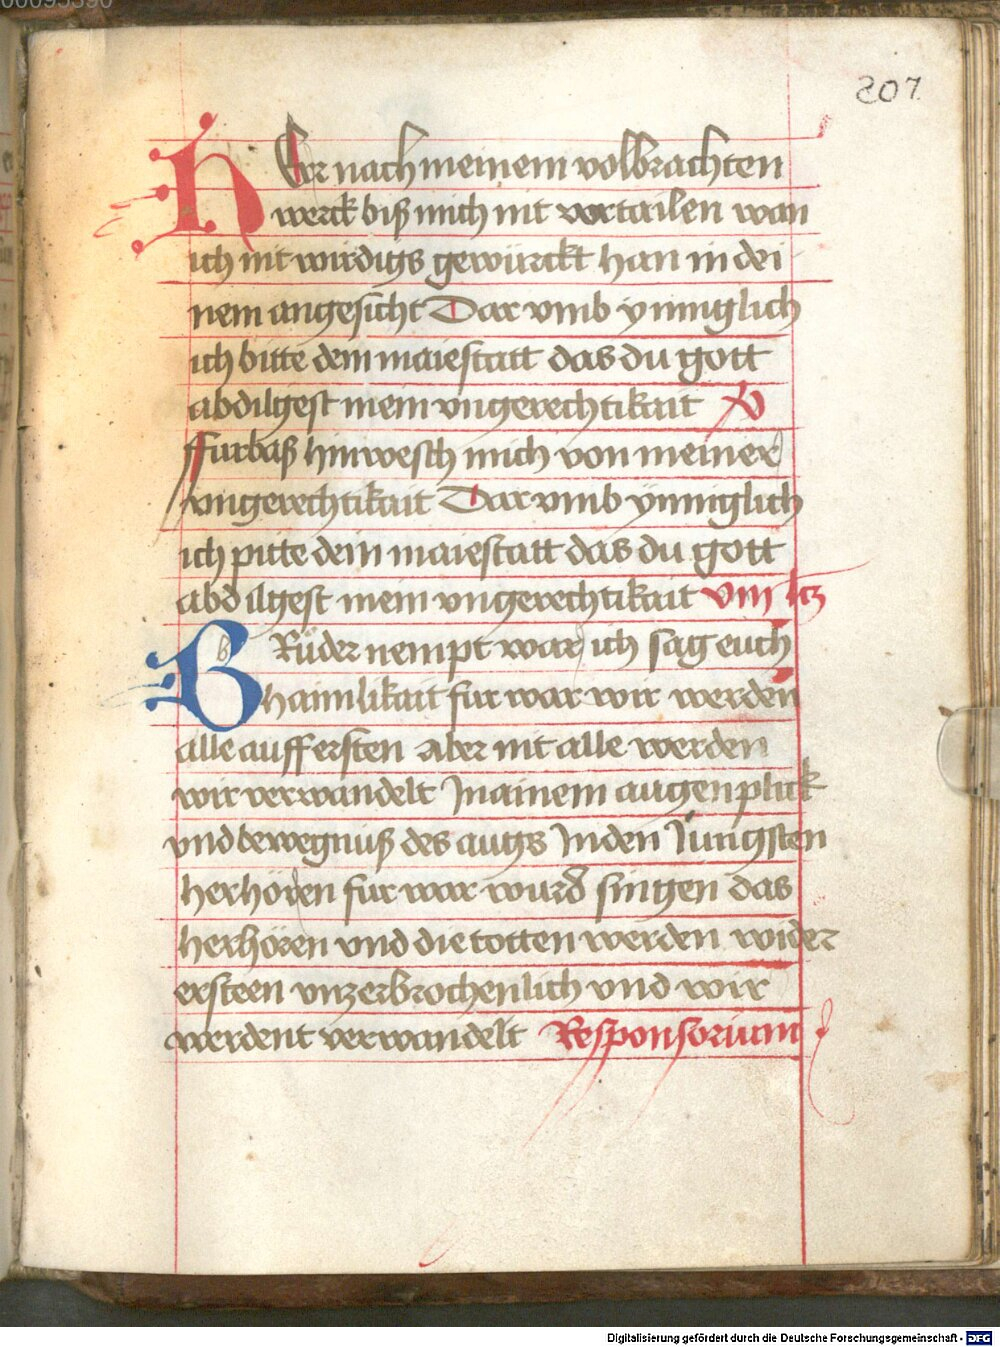 207
HEr nach meinem volbrachten
werck biß mich nit vortailen wan
ich nit wirdigs gewürckt han in dei
nem angesicht Dar vmb ynniglich
ich bitte dein maiestatt das du gott
abdilgest mein vngerechtikait V
ffurbaß hinwesch mich von meiner
vngerechtikait Dar vmb ÿnniglich
ich pitte dein maiestatt das du gott
abdilgest mein vngerechtikait viii lcz
BRüder nempt war ich sag euch
haimlikait fur war wir werden
alle auffersten aber nit alle werden
wir verwandelt In ainem augenplick
vnd bewegnuß des augs In den Jungsten
herhören fur war wurd singen das
herhören vnd die totten werden wider
ersteen vnzerbrochenlich vnd wir
werdent verwandelt Responsorium
Digitalisierung gefördert durch die Deutsche Forschungsgemeinschaft - DFG